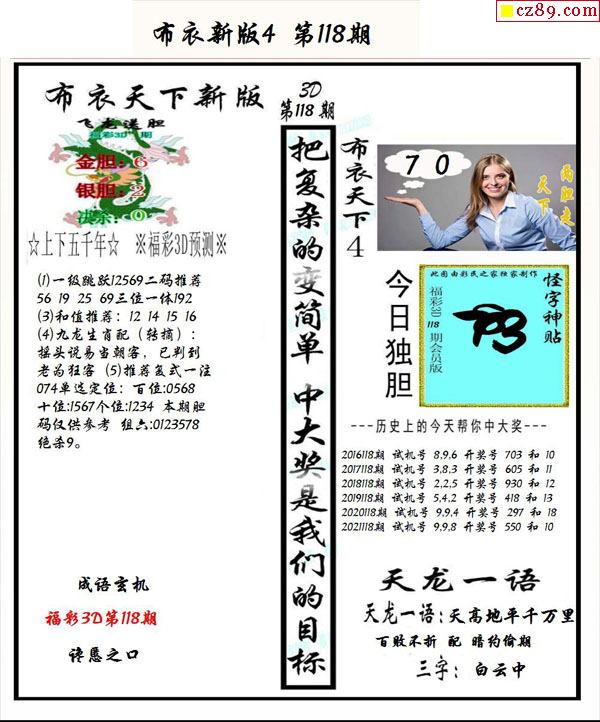 cz89.com
布衣新版4 第118期
布衣天下新版
飞龙送胆
福彩3D 期
金胆：6
银胆：2
决杀：0
☆上下五千年☆ ※福彩3D预测※
(1)一级跳跃12569二码推荐
56 19 25 69三位一体192
(3)和值推荐：12 14 15 16
(4)九龙生肖配（转摘）：
摇头说易当朝客，已判到
老为狂客 (5)推荐复式一注
074单选定位：百位:0568
十位:1567个位:1234 本期胆
码仅供参考 组六:0123578
绝杀9。
成语玄机
福彩3D第118期
谗慝之口
3D
第118期
把复杂的变简单 中大奖是我们的目标
布衣天下4
7 0
两胆走
天下
今日独胆
此图由彩民之家独家制作
福彩3D 118 期会员版
怪字神贴
---历史上的今天帮你中大奖---
2016118期 试机号 8,9,6 开奖号 703 和 10
2017118期 试机号 3,8,3 开奖号 605 和 11
2018118期 试机号 2,2,5 开奖号 930 和 12
2019118期 试机号 5,4,2 开奖号 418 和 13
2020118期 试机号 9,9,4 开奖号 297 和 18
2021118期 试机号 9,9,8 开奖号 550 和 10
天龙一语
天龙一语：天高地平千万里
百败不折 配 暗约偷期
三字：白云中